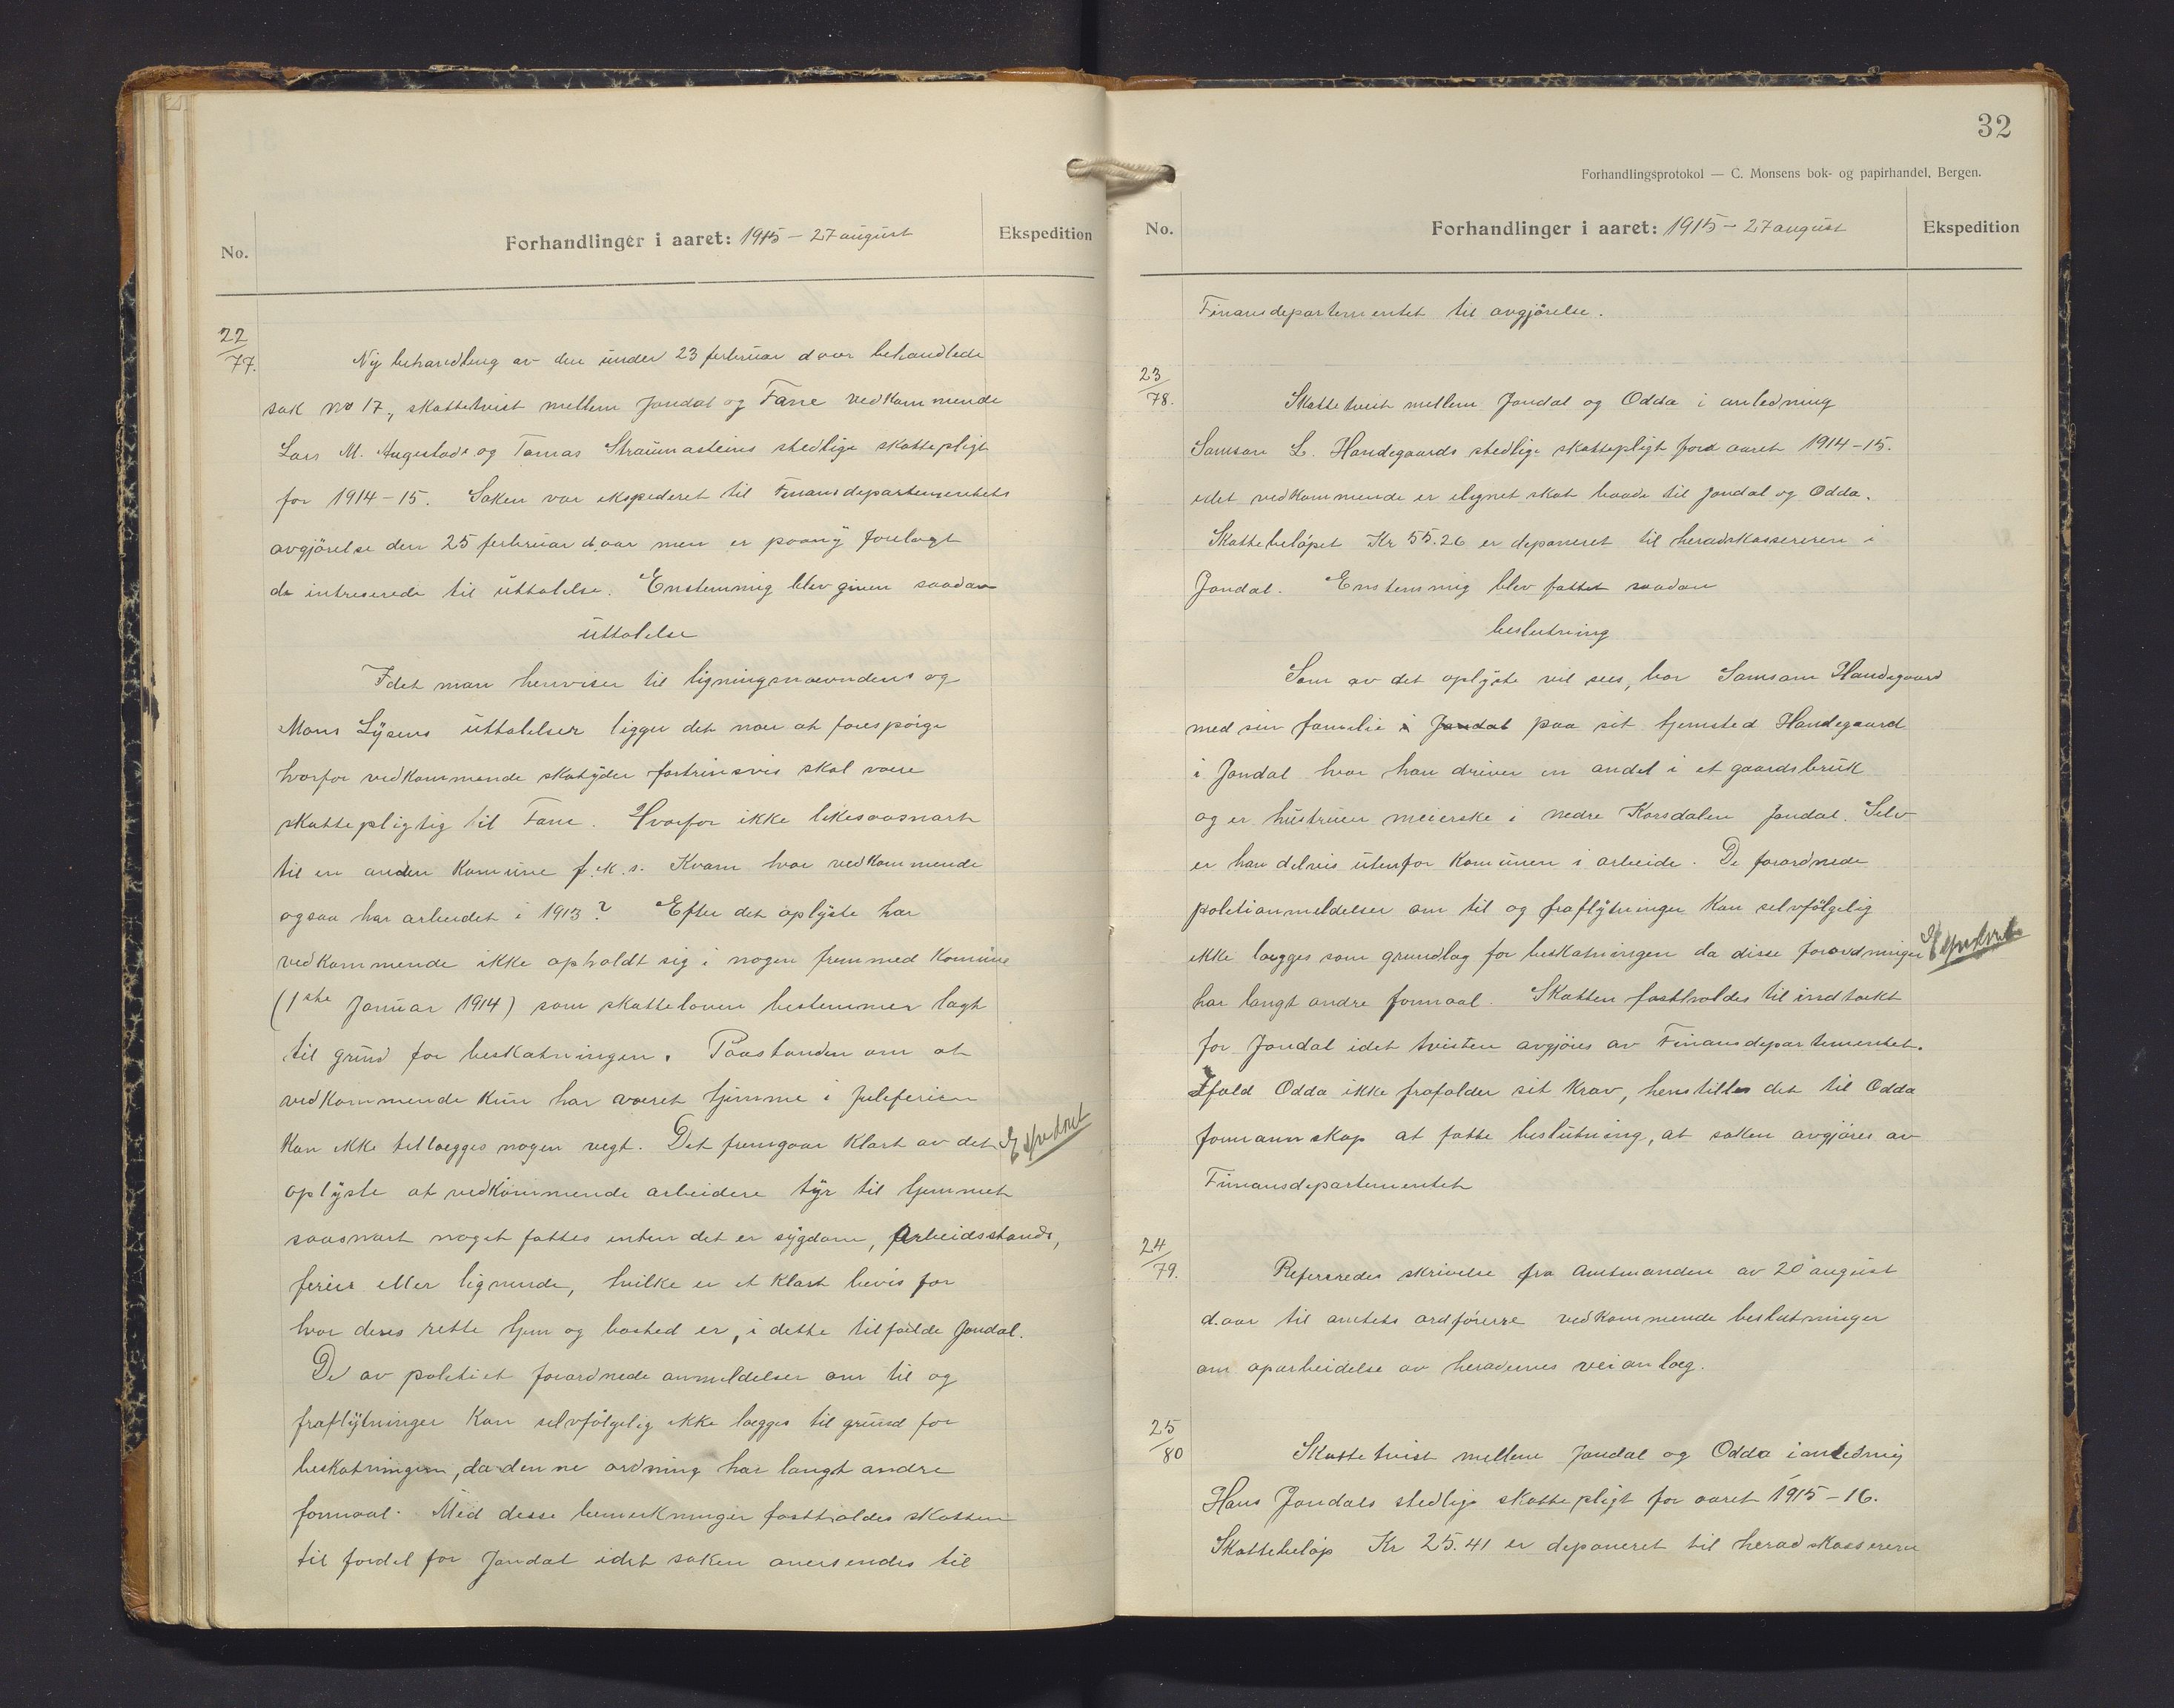 No.
Forhandlinger i aaret: 1915 – 27 august
Ekspedition
22/77.
Ny behandling av den under 23 februar d aar behandlede
sak no 17, skattetvist mellem Jondal og Fane vedkommende
Lars M. Augestads og Tomas Straumasteins stedlige skattepligt
for 1914-15. Saken var ekspederet til Finansdepartementets
avgjörelse den 25 februar d. aar men er paany forelagt
de intreserede til uttalelse. Enstemmig blev given saadan
uttalelse
Idet man henviser til ligningsnævndens og
Mons Lysens uttalelser ligger det nær at forespörge
hvorfor vedkommende skatyder fortrinsvis skal være
skattepligtig til Fane. Hvorfor ikke likesaasnart
til en anden Komune f. ek. s. Kvam hvor vedkommende
ogsaa har arbeidet i 1913? Efter det oplyste har
vedkommende ikke opholdt sig i nogen fremmed Komune
(1ste Januar 1914) som skatteloven bestemmer lagt
til grund for beskatningen. Paastanden om at
vedkommende kun har været hjemme i Juleferien
Kan ikke tillægges nogen vegt. Det fremgaar klart av det
oplyste at vedkommende arbeidere tyr til hjemmet
saasnart noget fattes enten det er sygdom, Arbeidsstands,
ferier eller lignende, hvilke er et klart bevis for
hvor deres rette hjem og bosted er, i dette tilfælde Jondal.
De av politiet forordnede anmeldelser om til og
fraflytninger Kan selvfölgelig ikke lægges til grund for
beskatningen, da denne ordning har langt andre
formaal. Med disse bemerkninger fastholdes skatten
til fordel for Jondal idet saken oversendes til
32
Forhandlingsprotokol — C. Monsens bok- og papirhandel, Bergen.
No.
Forhandlinger i aaret: 1915 – 27 august
Ekspedition
Finansdepartementet til avgjörelse.
23/78.
Skattetvist mellem Jondal og Odda i anledning
Samson L. Handegaards stedlige skattepligt ford aaret 1914-15.
idet vedkommende er ilignet skat baade til Jondal og Odda.
Skattebelöpet Kr 55.26 er deponeret til heradskassereren i
Jondal. Enstemmig blev fattet saadan
beslutning
Som av det oplyste vil sees, bor Samson Handegaard
med sin familie i Jondal paa sit hjemsted Handegaard
i Jondal hvor han driver en andel i et gaardsbruk
og er hustruen meierske i nedre Korsdalen Jondal. Selv
er han delvis utenfor Komunen i arbeide. De forordnede
politianmeldelser om til og fraflytninger Kan selvfölgelig
ikke lægges som grundlag for beskatningen da disse forordninger
har langt andre formaal. Skatten fastholdes til indtækt
for Jondal idet tvisten avgjöres av Finansdepartementet.
Ifald Odda ikke frafalder sit krav, henstilles det til Odda
formannskap at fatte beslutning, at saken avgjöres av
Finansdepartementet
24/79.
Refereredes skrivelse fra Amtmanden av 20 august
d. aar til amtets ordförere vedkommende beslutninger
om oparbeidelse av heradernes veianlæg.
25/80
Skattetvist mellem Jondal og Odda i anledning
Hans Jondals stedlige skattepligt for aaret 1915-16.
Skattebelöp Kr 25.41 er deponeret til heradskassereren